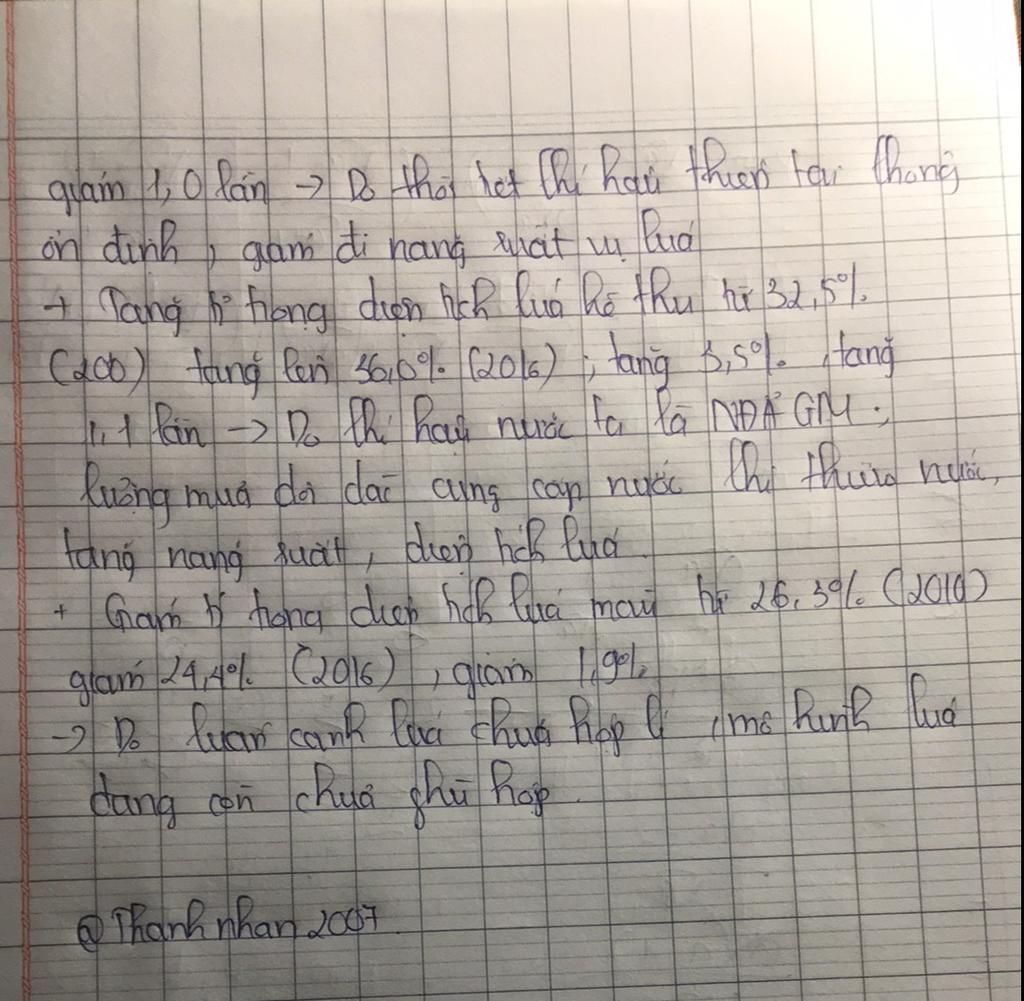 giảm 1,0 lần → Do thời tiết khí hậu thiên tai không
ổn định, giảm đi năng suất vụ lúa
+ Tăng tỉ trọng diện tích lúa hè thu từ 32,5%
tăng lên 36,0% (2016), tăng 3,5%, tăng
1,1 lần → Do khí hậu nước ta là NĐÂGM;
lượng mưa dồi dào cung cấp nước khi thiếu nước,
tăng năng suất, diện tích lúa
+ Giảm tỉ trọng diện tích lúa mùa từ 26,3% (2010)
giảm 24,4% (2016), giảm 1,9%
→ Do luân canh lúa chưa hợp lí, mô hình lúa
đang còn chưa phù hợp.
@Thanh nhan 2007